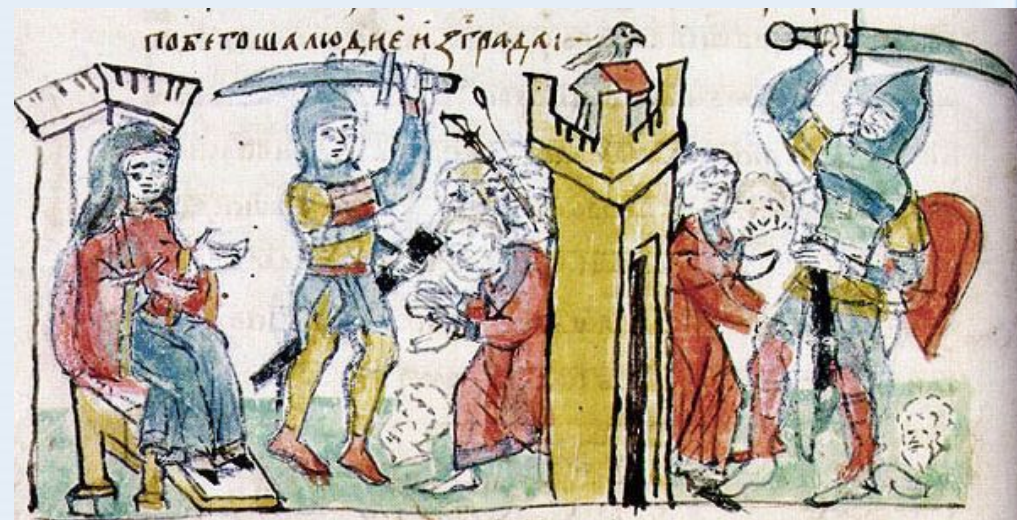 побегоша людиѐ и з̾града: